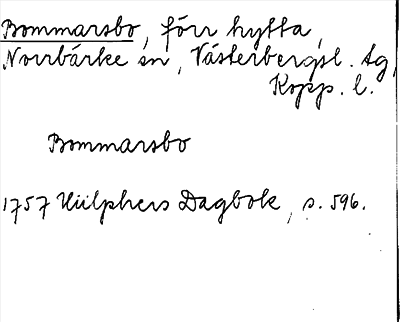 Bommarsbo, förr hytta,
Norrbärke sn, Västerbergsl. tg,
Kopp. l.
Bommarsbo
1757 Hülphers Dagbok, s. 596.